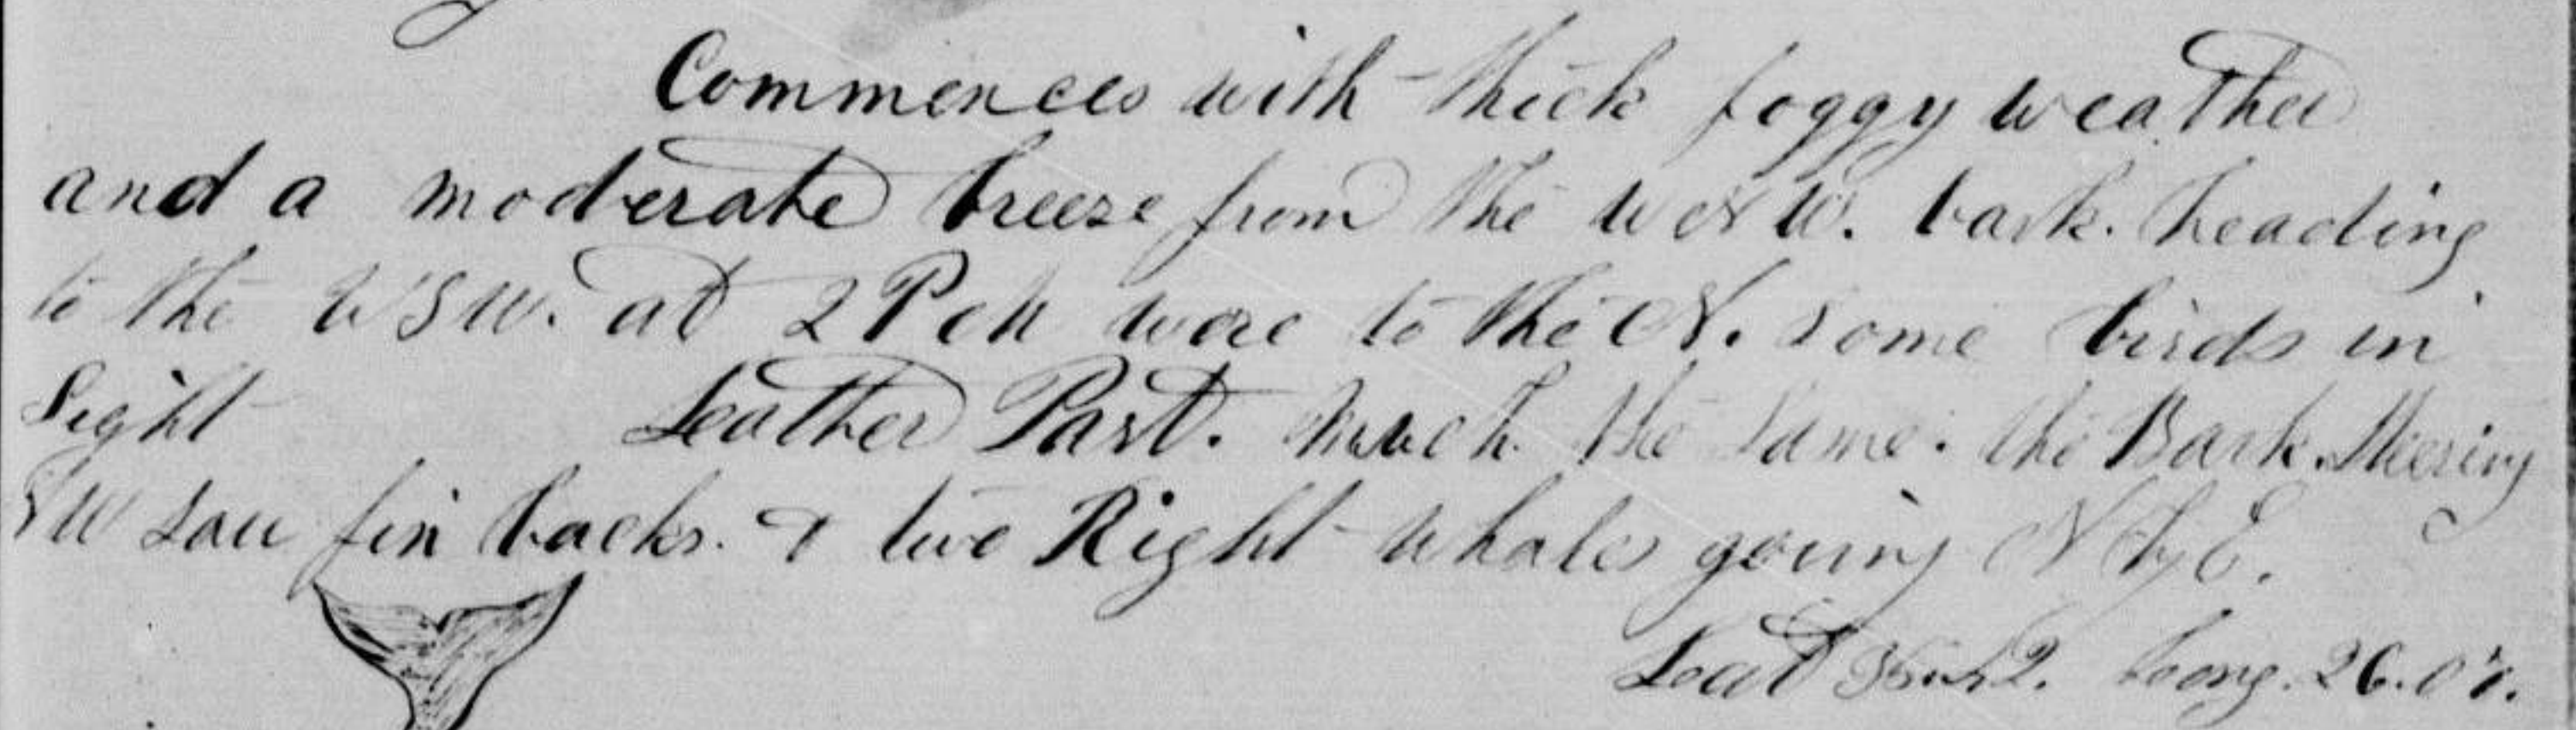 Commences with thick foggy weather
and a moderate breeze from the WNW. bark. heading
to the WSW. at 2 PM ware to the N. Some birds in
Sight Leather Part. Much the Same. the Bark Steering
SW saw fin backs. & two Right whales going N by E.
Leat Long. 26.